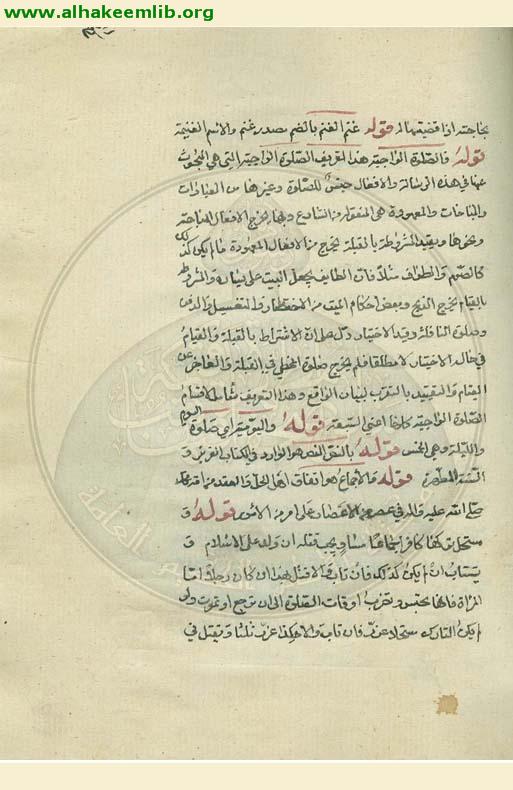 www.alhakeemlib.org
بحاجته اذا قضيتها له قوله غنم الغنم بالضم مصدر غنم والاسم الغنيمة
قوله فالصلوة الواجبة هذا تعريف الصلوة الواجبة التي هي المبحوث
عنها في هذه الرسالة والافعال جنس للصلوة وغيرها من العبادات
والمباحات والمعهودة هي المنقولة من الشارع وبها يخرج الافعال المباحة
ونحوها وبقيد المشروطة بالقبلة يخرج من الافعال المعهودة ما لم يكن كذلك
كالصوم والطواف مثلا فان الطايف يجعل البيت على يساره والمشروطة
بالقيام يخرج الذبح وبعض احكام الميت من الاحتضار والتغسيل والدفن
وصلوة النافلة وقيد الاختيار دل على ان الاشتراط بالقبلة والقيام
في حال الاختيار لا مطلقا فلم يخرج صلوة المخطي في القبلة والعاجز عن
القيام والتقييد بالتقرب لبيان الواقع وهذا التعريف شامل لاقسام
الصلوة الواجبة كلها اعني السبعة قوله واليومية اي صلوة اليوم
والليلة وهي الخمس قوله بالنص النص هو الوارد في الكتاب العزيز و
السنة المطهرة قوله والاجماع هو اتفاق اهل الحل والعقد من امة محمد
صلى الله عليه واله في عصر من الاعصار على امر من الامور قوله و
مستحل تركها كافر اجماعا منا ويجب قتله ان ولد على الاسلام و
يستتاب ان لم يكن كذلك فان تاب والا قتل هذا ان كان رجلا امّا
المراة فانها تحبس وتضرب اوقات الصلوة الى ان ترجع او تموت ولو
لم يكن التارك مستحلا عزر فان تاب والا هكذا عزر ثلثا ويقتل في